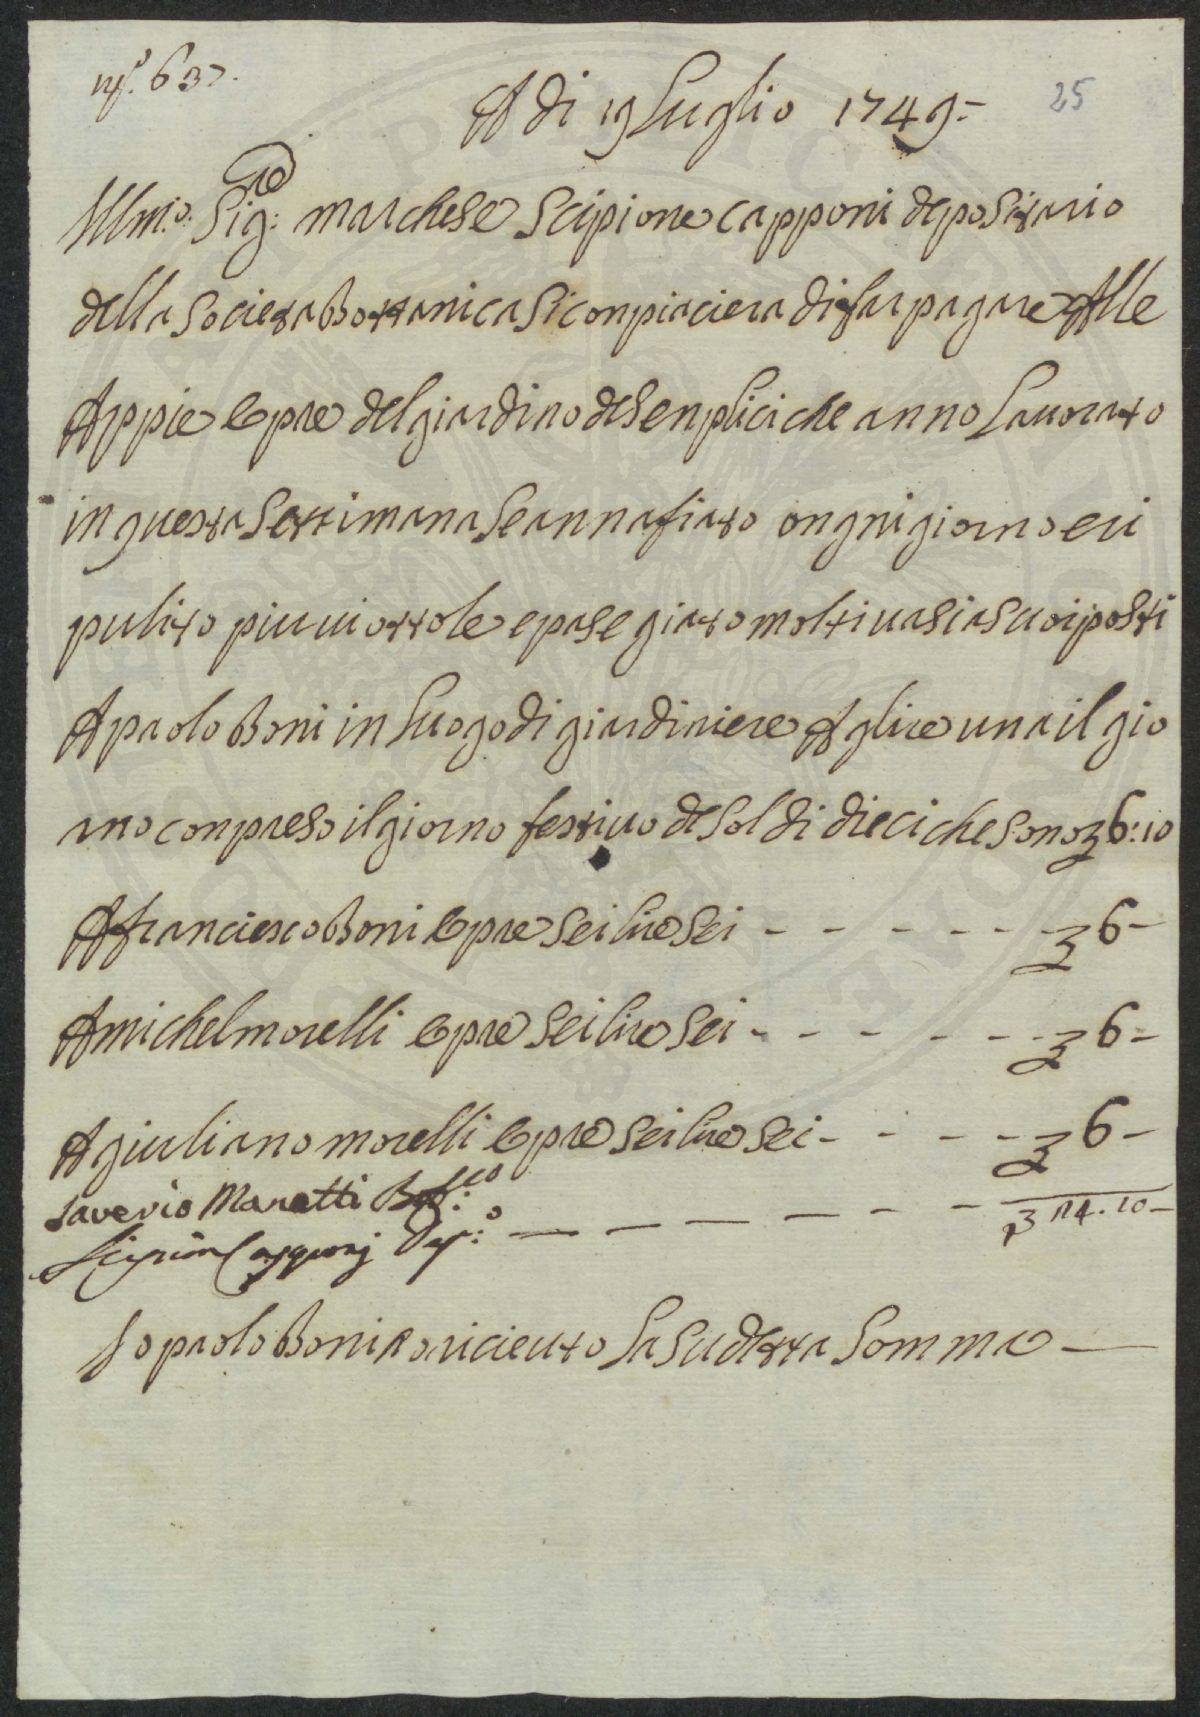 N.º 637.
25
A di 19 Luglio 1749.-
Illm.o: Sig:re marchese Scipione capponi depositario
della Societa Bottanica Si conpiaciera di far pagare Alle
Appie Opre del giardino de Senplici che anno Lauorato
in questa Settimana Se annafiato ongni giorno eli
pulito piu uiottole e pasegiato molti uasi a Suoi posti
A paolo Boni in Luogo di giardiniere A lire una il gio
rno conpreso il giorno festiuo de Soldi dieci che Sono 6:10
A franciesco Boni Opre Sei lire Sei - - - - - - 6-
A michel morelli Opre Sei lire Sei - - - - - - 6-
A giuliano morelli Opre Sei lire Sei - - - - - 6-
Saverio Manetti
Scipion Capponi Dep:o — — — — — — 24.10-
Io paolo Boni o riceuto La Sudetta Somma —